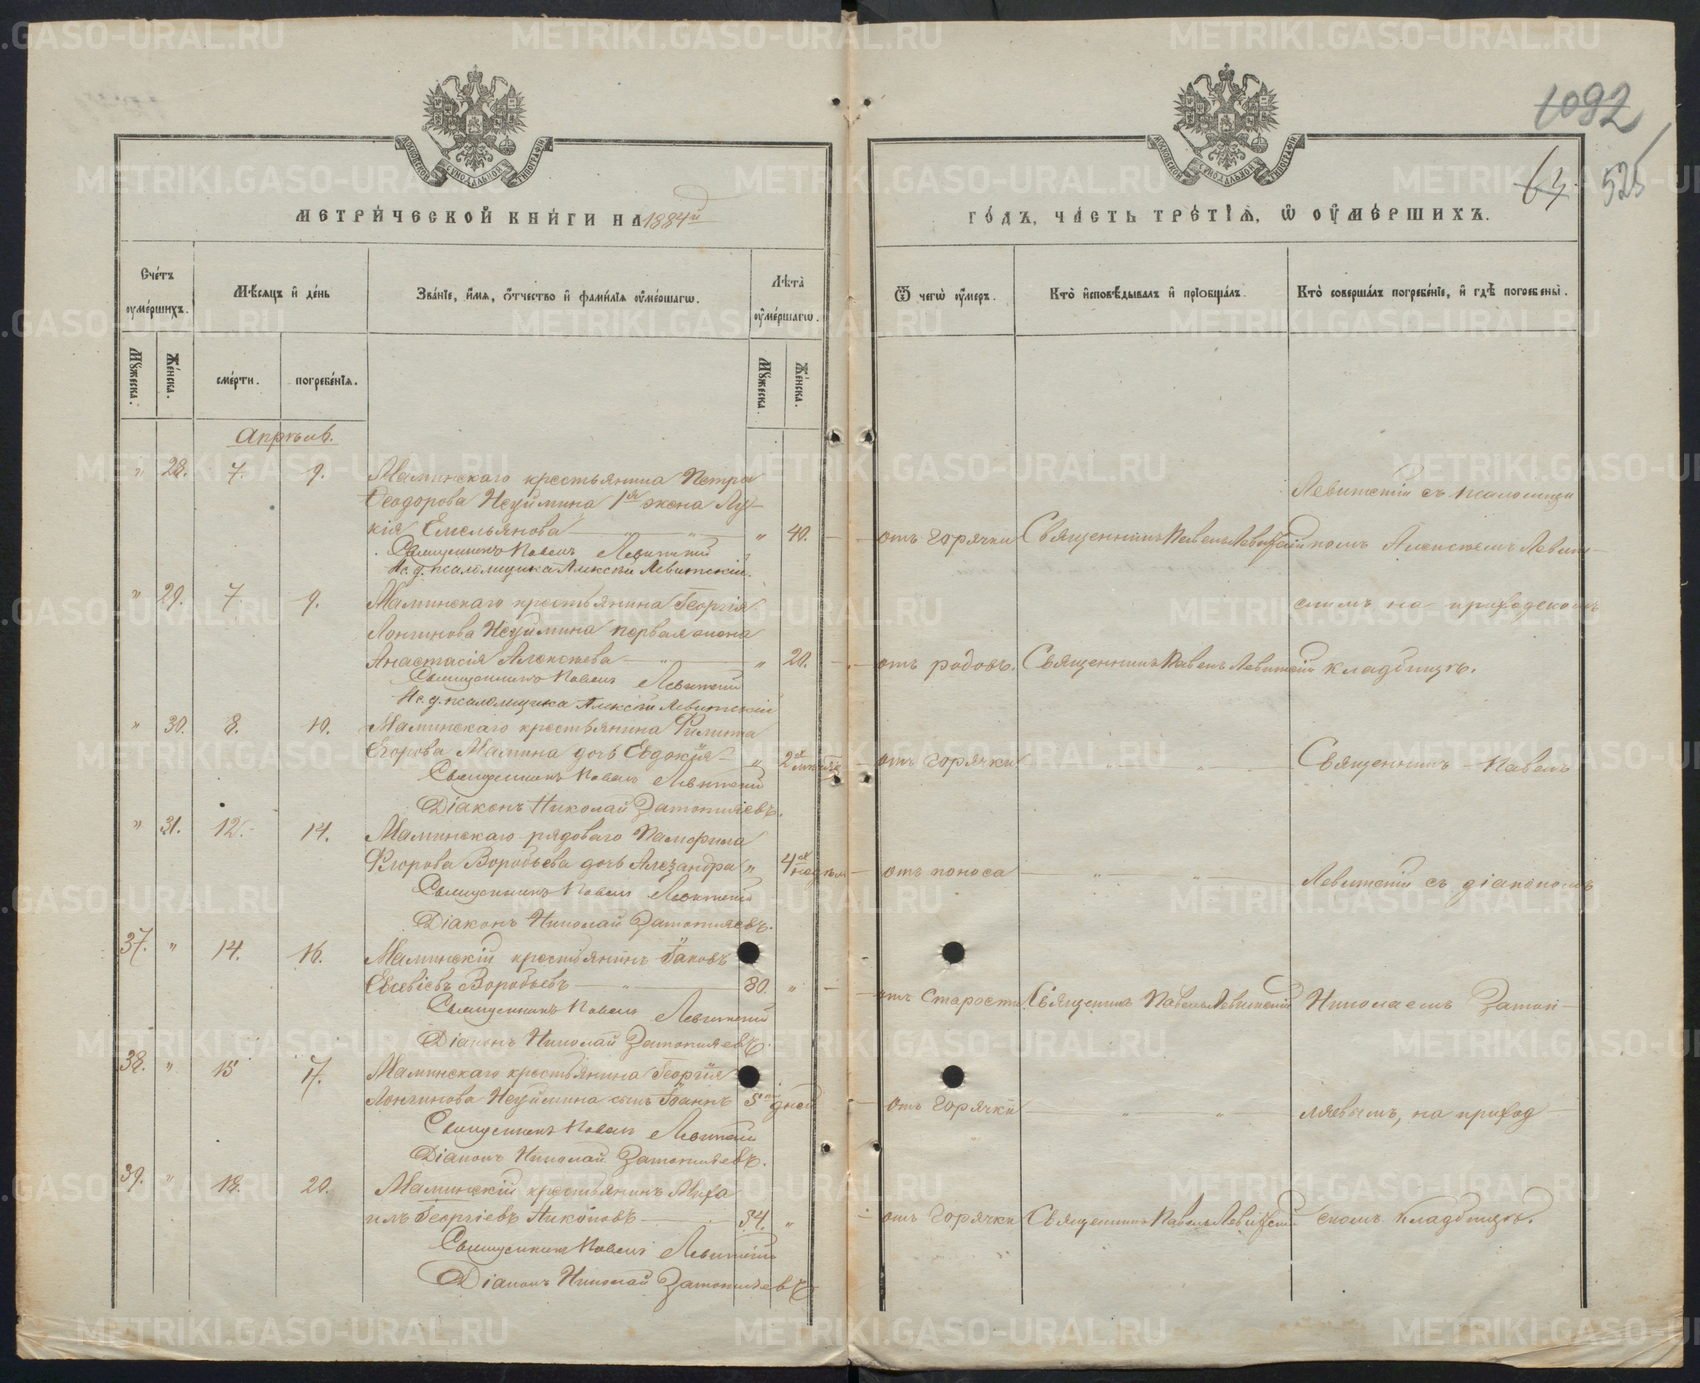 1092
64 525
МЕТРИЧЕСКОЙ КНИГИ НА 1884й
ГОДЪ, ЧАСТЬ ТРЕТІЯ, Ѡ ОУМЕРШИХЪ.
Счетъ оумершихъ.
Мѣсяцъ и день
Званіе, имя, отчество и фамилія оумершагѡ.
Лѣта оумершагѡ.
Ѿ чегѡ оумеръ.
Кто исповѣдывалъ и пріобщалъ.
Кто совершалъ погребеніе, и гдѣ погребены.
Мужеска.
Женска.
смерти.
погребенія.
Мужеска.
Женска.
Апрѣль.
" 28. 7. 9. Маминскаго крестьянина Петра
Ѳеодорова Неуймина 1я жена Лу-
кія Емельянова " 40. отъ горячки Священникъ Павелъ Левитскій
Священникъ Павелъ Левитскій
Ис. д. псаломщика Алексѣй Левитскій.
" 29. 7. 9. Маминскаго крестьянина Георгія
Лонгинова Неуймина первая жена
Анастасія Алексѣева " 20. отъ родовъ. Священникъ Павелъ Левитскій
Священникъ Павелъ Левитскій
Ис. д. псаломщика Алексѣй Левитскій
" 30. 8. 10. Маминскаго крестьянина Филиппа
Егорова Мамина дочь Евдокія " 2х отъ горячки " "
Священникъ Павелъ Левитскій
Діаконъ Николай Затопляевъ.
" 31. 12. 14. Маминскаго рядоваго Памфила
Флорова Воробьева дочь Александра " 4х недѣль отъ поноса " "
Священникъ Павелъ Левитскій
Діаконъ Николай Затопляевъ.
37. " 14. 16. Маминскій крестьянинъ Іаковъ
Евсевіевъ Воробьевъ 80. " отъ старости Священникъ Павелъ Левитскій
Священникъ Павелъ Левитскій
Діаконъ Николай Затопляевъ.
38. " 15 17. Маминскаго крестьянина Георгія
Лонгинова Неуймина сынъ Іоаннъ 5 дней отъ горячки " "
Священникъ Павелъ Левитскій
Діаконъ Николай Затопляевъ.
39. " 18. 20. Маминскій крестьянинъ Миха
илъ Георгіевъ 54. " отъ горячки Священникъ Павелъ Левитскій
Священникъ Павелъ Левитскій
Діаконъ Николай Затопляевъ
Левитскій съ псаломщи
комъ Алексѣемъ Левит-
скимъ на приходскомъ
кладбищѣ.
Священникъ Павелъ
Левитскій съ діакономъ
Николаемъ Затоп-
ляевымъ, на приход
скомъ кладбищѣ.
METRIKI.GASO-URAL.RU